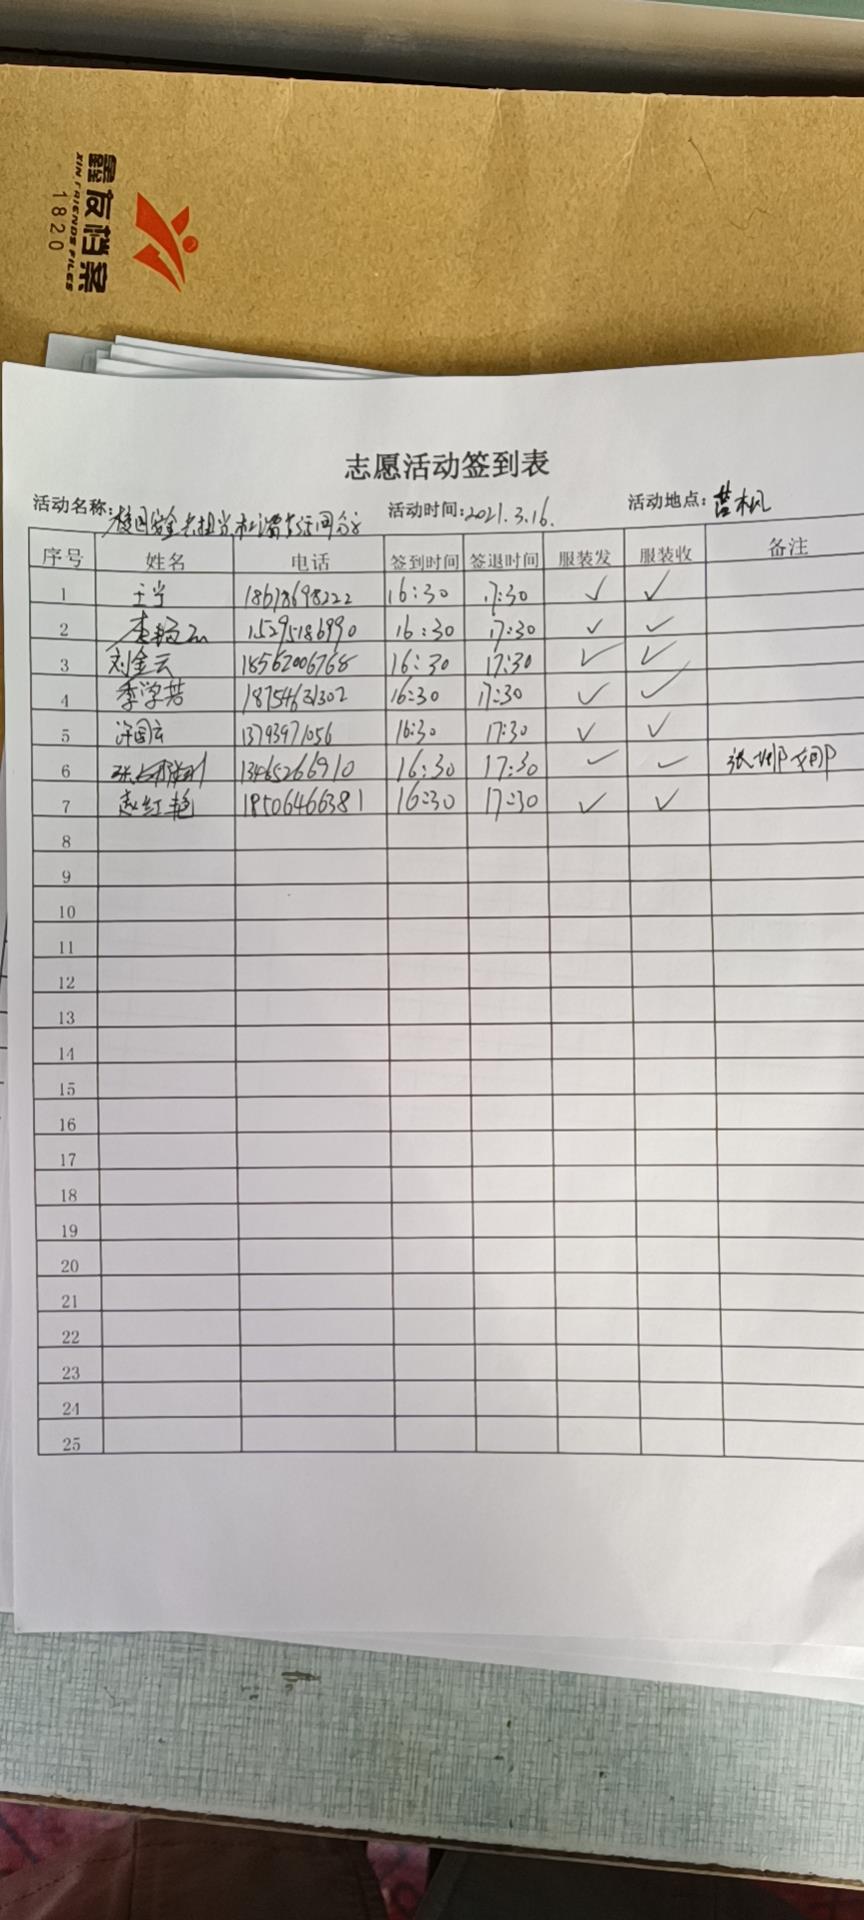 鑫友档案
XIN FRIENDS FILES
1820
志愿活动签到表
活动名称:校园安全 活动时间:2021.3.16. 活动地点:营枫
序号 姓名 电话 签到时间 签退时间 服装发 服装收 备注
1 18678698222 16:30 17:30 ✓ ✓
2 15295186990 16:30 17:30 ✓ ✓
3 刘金云 18562006768 16:30 17:30 ✓ ✓
4 季学芳 18754631302 16:30 17:30 ✓ ✓
5 许国云 13793971056 16:30 17:30 ✓ ✓
6 13465266910 16:30 17:30 ✓ ✓
7 赵红艳 18506466381 16:30 17:30 ✓ ✓
8
9
10
11
12
13
14
15
16
17
18
19
20
21
22
23
24
25